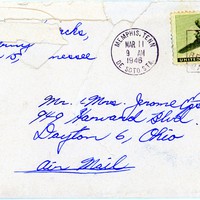 cks,
MEMPHIS, TENN.
MAR 11
9 AM
1946
DE SOTO STA.
UNITED
Mr. & Mrs. Jerome
949 Harvard Blvd.
Dayton 6, Ohio
Air Mail